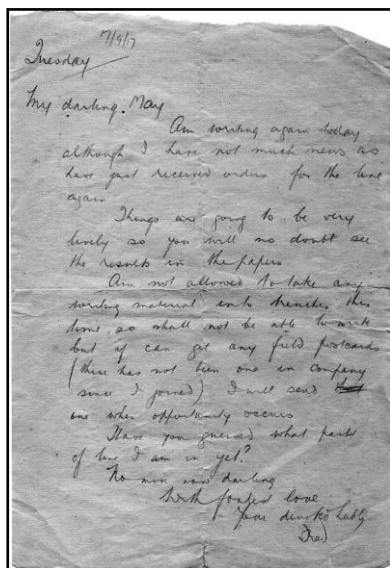 7/9/17
Tuesday
My darling May
Am writing again today
although I have not much news as
have just received orders for the line
again
Things are going to be very
lively so you will no doubt see
the results in the papers
Am not allowed to take any
writing material into trenches this
time so shall not be able to write
but if can get any field postcards
(there has not been one in company
since I joined) I will send
one when opportunity occurs
Have you guessed what part
of line I am in yet?
No more now darling
With fondest love
Your devoted hubby
Fred